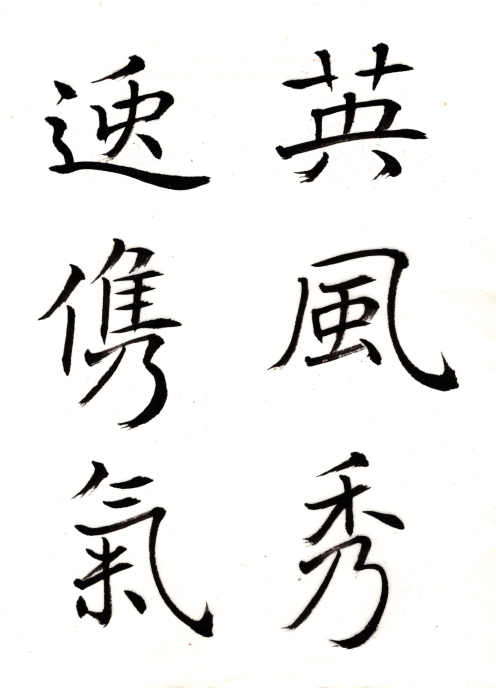 英風秀
逸㑺氣